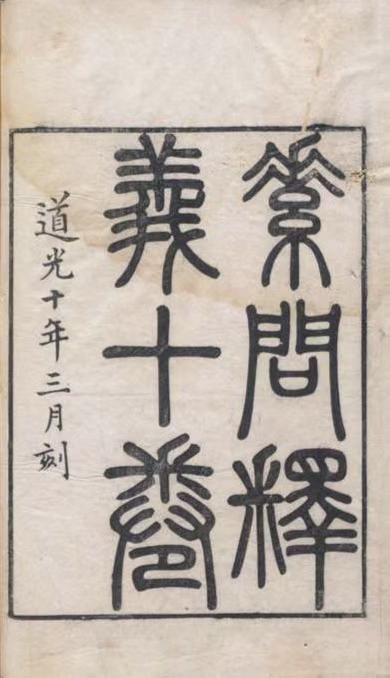 素問釋
義十卷
道光十年三月刻